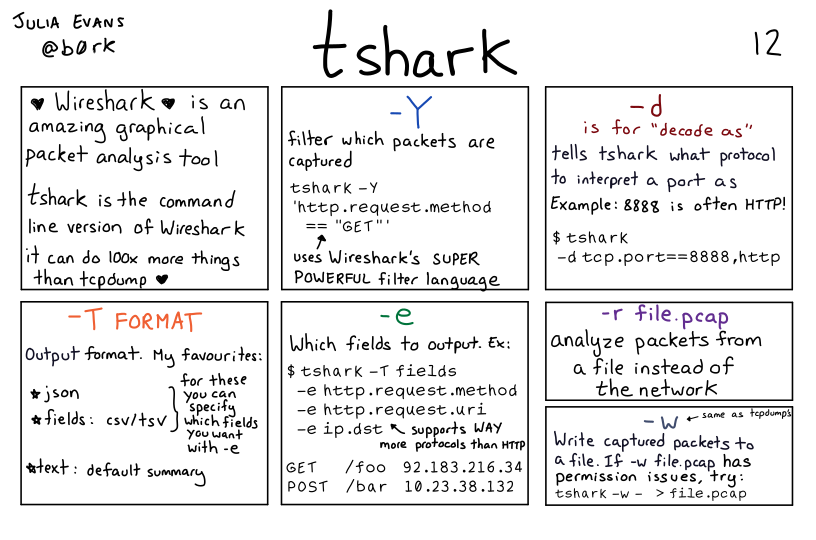 JULIA EVANS
@b0rk
tshark
12
♥ Wireshark ♥ is an
amazing graphical
packet analysis tool
tshark is the command
line version of Wireshark
it can do 100x more things
than tcpdump ♥
-Y
filter which packets are
captured
tshark -Y
'http.request.method
== "GET"'
uses Wireshark's SUPER
POWERFUL filter language
-d
is for "decode as"
tells tshark what protocol
to interpret a port as
Example: 8888 is often HTTP!
$ tshark
-d tcp.port==8888,http
-T FORMAT
Output format. My favourites:
★ json
★ fields: csv/tsv
for these
you can
specify
which fields
you want
with -e
★ text: default summary
-e
Which fields to output. Ex:
$ tshark -T fields
-e http.request.method
-e http.request.uri
-e ip.dst
supports WAY
more protocols than HTTP
GET /foo 92.183.216.34
POST /bar 10.23.38.132
-r file.pcap
analyze packets from
a file instead of
the network
-w
same as tcpdump's
Write captured packets to
a file. If -w file.pcap has
permission issues, try:
tshark -w - > file.pcap